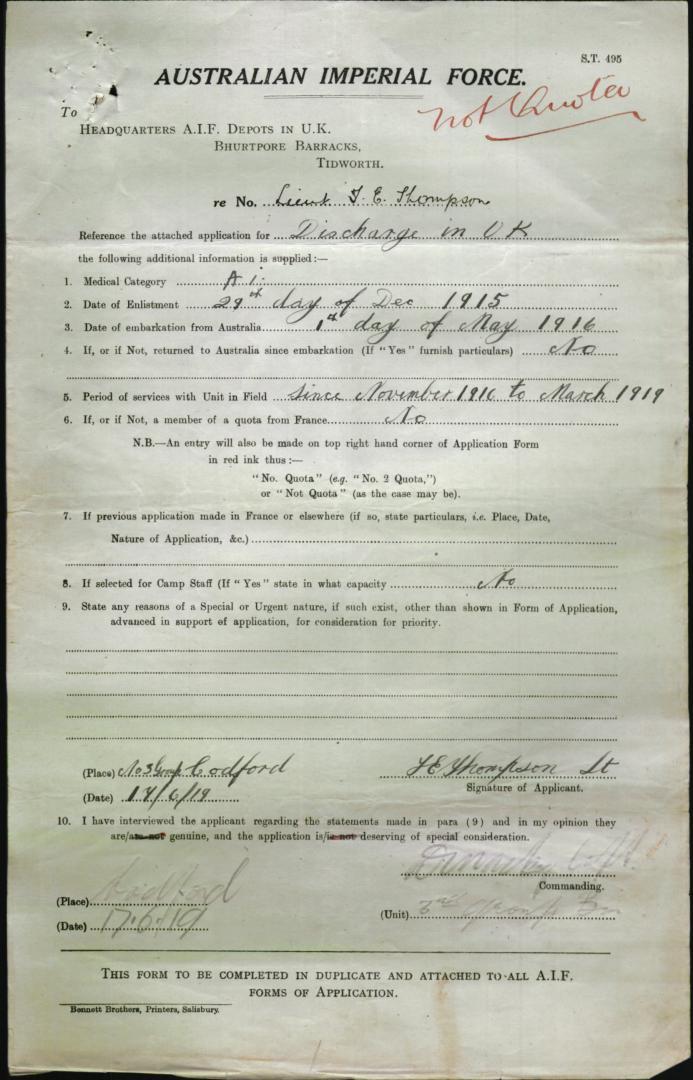 S.T. 495
AUSTRALIAN IMPERIAL FORCE.
Not Quota
To
HEADQUARTERS A.I.F. DEPOTS IN U.K.
BHURTPORE BARRACKS,
TIDWORTH.
re No. Lieut T. E. Thompson
Reference the attached application for Discharge in UK
the following additional information is supplied:—
1. Medical Category A 1.
2. Date of Enlistment 29th day of Dec 1915
3. Date of embarkation from Australia 1st day of May 1916
4. If, or if Not, returned to Australia since embarkation (If "Yes" furnish particulars) No
5. Period of services with Unit in Field since November 1916 to March 1919
6. If, or if Not, a member of a quota from France No
N.B.—An entry will also be made on top right hand corner of Application Form
in red ink thus:—
"No. Quota" (e.g. "No. 2 Quota,")
or "Not Quota" (as the case may be).
7. If previous application made in France or elsewhere (if so, state particulars, i.e. Place, Date,
Nature of Application, &c.)
8. If selected for Camp Staff (If "Yes" state in what capacity No
9. State any reasons of a Special or Urgent nature, if such exist, other than shown in Form of Application,
advanced in support of application, for consideration for priority.
(Place) No 3 Group Codford
TE Thompson Lt
Signature of Applicant.
(Date) 17/6/19
10. I have interviewed the applicant regarding the statements made in para (9) and in my opinion they
are/are not genuine, and the application is/is not deserving of special consideration.
Commanding.
(Place) Codford
(Unit) 3rd Group
(Date) 17.6.19
THIS FORM TO BE COMPLETED IN DUPLICATE AND ATTACHED TO ALL A.I.F.
FORMS OF APPLICATION.
Bennett Brothers, Printers, Salisbury.